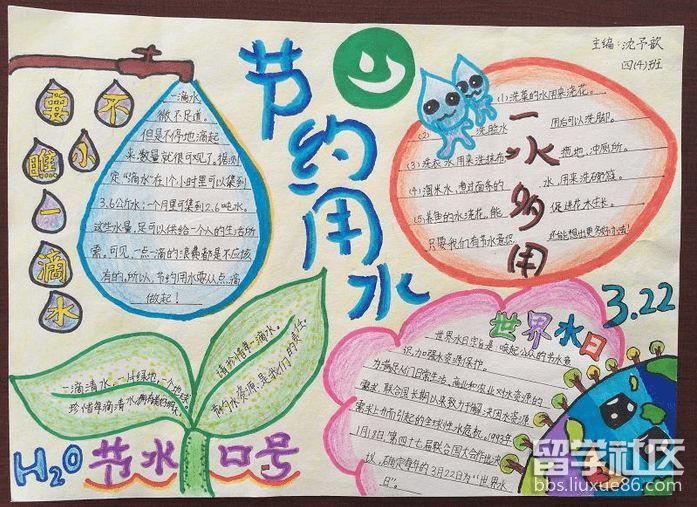 主编:沈予歆
四(4)班
节约用水
要不
瞧小
一
滴
水
一滴水
微不足道。
但是不停地滴起
来,数量就很可观了。据测
定“滴水”在1个小时里可以集到
3.6公斤水;一个月里可集到2.6吨水。
这些水量,足可以供给一个人的生活所
需。可见,一点一滴的浪费都是不应该
有的。所以,节约用水要从点滴
做起!
一水多用
(1)洗菜的水用来浇花。
(2)洗脸水用后可以洗脚。
(3)洗衣水用来洗拖布、拖地、冲厕所。
(4)淘米水、煮过面条的水,用来洗碗筷。
(5)养鱼的水浇花,能促进花木生长。
只要我们有节水意识,
3.22
世界水日
世界水日宗旨是:唤起公众的节水意
识,加强水资源保护。
为满足人们日常生活、商业和农业对水资源的
需求,联合国长期以来致力于解决因水资源
需求上升而引起的全球性水危机。1993年
1月18日,第四十七届联合国大会作出决
议,确定每年的3月22日为“世界水
日”。
一滴清水,一片绿地,一个地球
珍惜每滴清水,
请珍惜每一滴水。
节约水资源,是我们的责任。
H2O
节水口号
留学社区
bbs.liuxue86.com